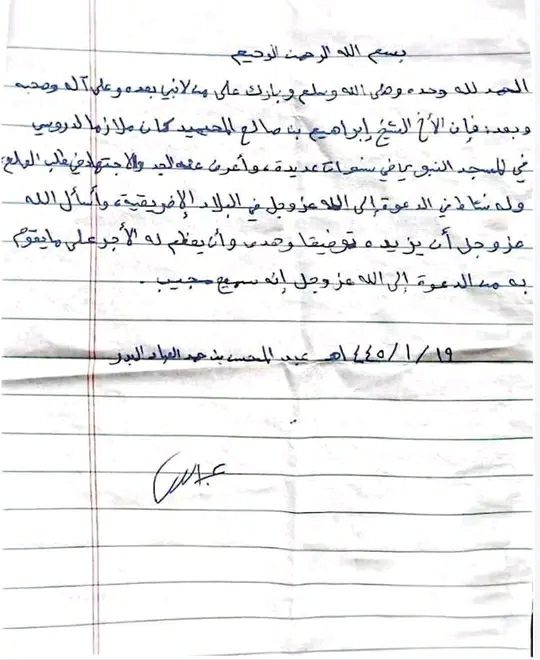 بسم الله الرحمن الرحيم
الحمد لله وحده وصلى الله وسلم وبارك على من لا نبي بعده وعلى آله وصحبه
وبعد: فإن الأخ الشيخ إبراهيم بن صالح المحيميد كان ملازما لدروسي
في المسجد النبوي في سنوات عديدة، وأعرف عنه الجد والاجتهاد في طلب العلم،
وله نشاط في الدعوة إلى الله عز وجل في البلاد الإفريقية، وأسأل الله
عز وجل أن يزيده توفيقا وهدى وأن يعظم له الأجر على ما يقوم
به من الدعوة إلى الله عز وجل إنه سميع مجيب.
١٩/١/١٤٤٥هـ عبد المحسن بن حمد العباد البدر